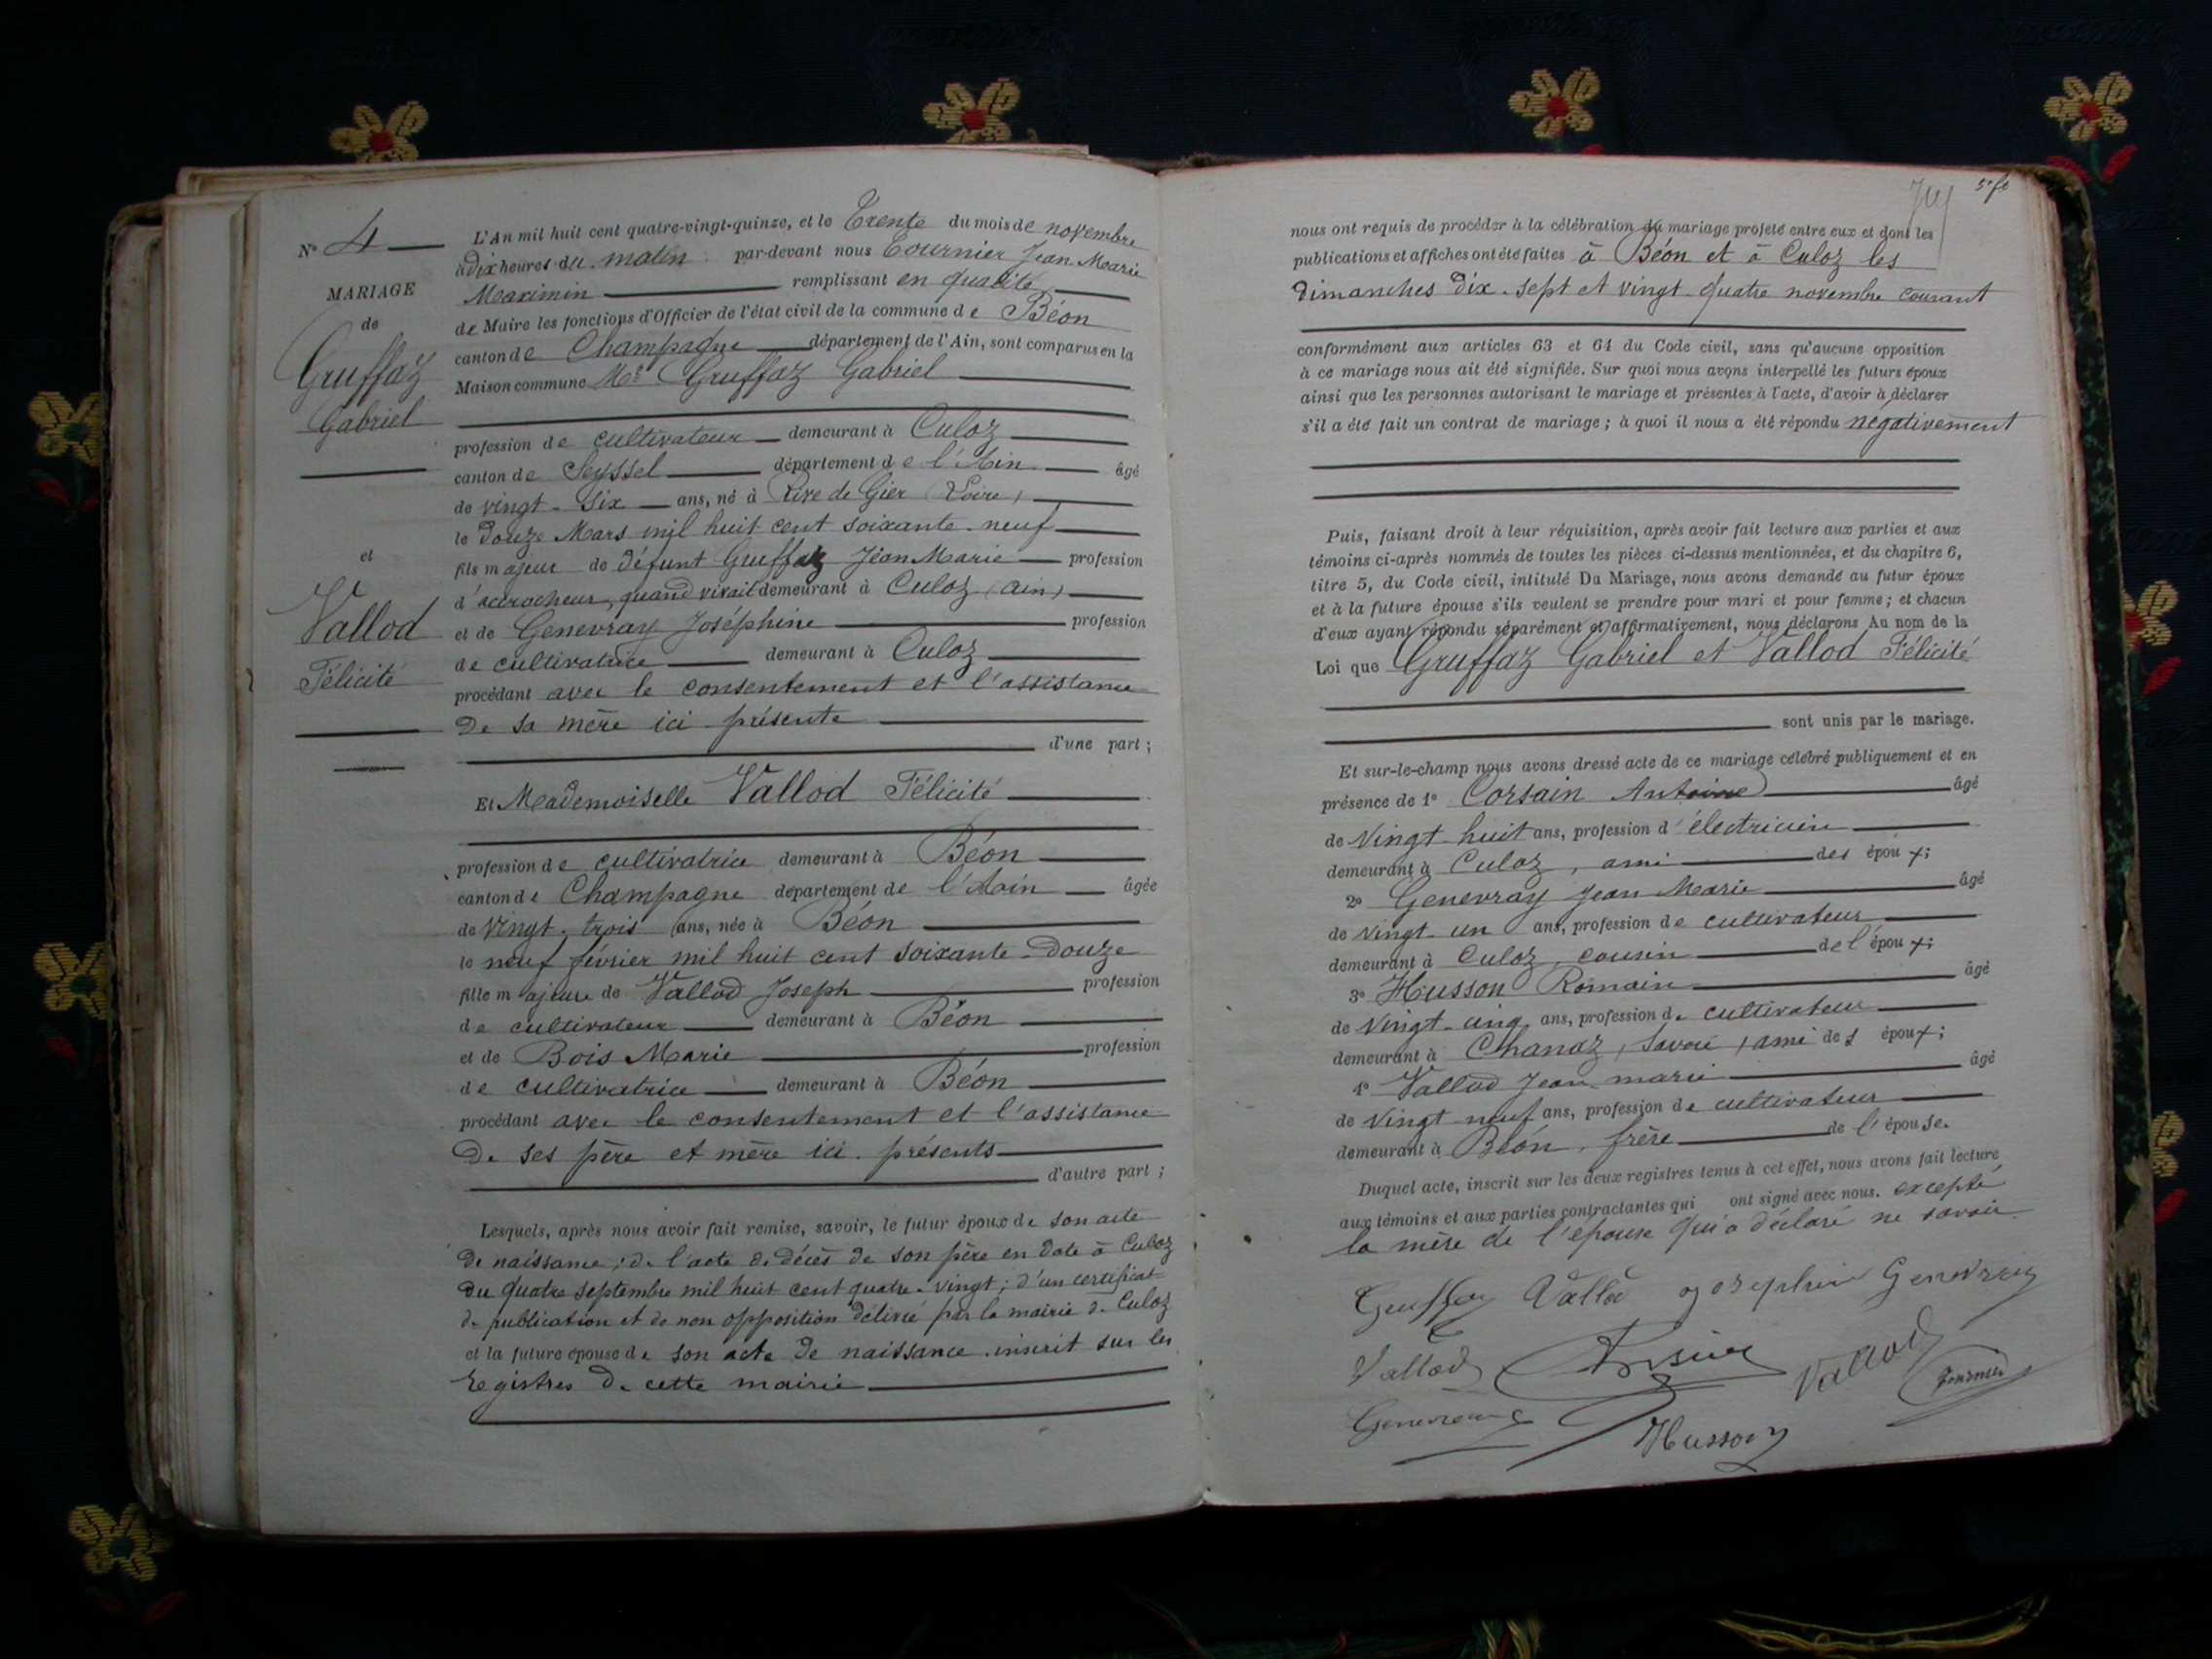 N° 4
MARIAGE
de
Gruffaz
Gabriel
et
Vallod
Félicité
L'An mil huit cent quatre-vingt-quinze, et le Trente du mois de novembre
à dix heures du matin par-devant nous Tournier Jean Marie
Maximin remplissant en qualité
de Maire les fonctions d'Officier de l'état civil de la commune de Béon
canton de Champagne département de l'Ain, sont comparus en la
Maison commune Mr Gruffaz Gabriel
profession de cultivateur demeurant à Culoz
canton de Seyssel département de l'Ain âgé
de vingt-six ans, né à Rive de Gier (Loire)
le douze Mars mil huit cent soixante-neuf
fils majeur de défunt Gruffaz Jean Marie profession
d'accrocheur, quand vivait demeurant à Culoz (Ain)
et de Genevray Joséphine profession
de cultivatrice demeurant à Culoz
procédant avec le consentement et l'assistance
de sa mère ici présente
d'une part ;
Et Mademoiselle Vallod Félicité
profession de cultivatrice demeurant à Béon
canton de Champagne département de l'Ain âgée
de vingt-trois ans, née à Béon
le neuf février mil huit cent soixante-douze
fille majeure de Vallod Joseph profession
de cultivateur demeurant à Béon
et de Bois Marie profession
de cultivatrice demeurant à Béon
procédant avec le consentement et l'assistance
de ses père et mère ici présents
d'autre part ;
Lesquels, après nous avoir fait remise, savoir, le futur époux de son acte
de naissance ; de l'acte de décès de son père en date à Culoz
du quatre septembre mil huit cent quatre-vingt ; d'un certificat
de publication et de non opposition délivré par la mairie de Culoz
et la future épouse de son acte de naissance inscrit sur les
registres de cette mairie
nous ont requis de procéder à la célébration du mariage projeté entre eux et dont les
publications et affiches ont été faites à Béon et à Culoz les
dimanches dix-sept et vingt-quatre novembre courant
conformément aux articles 63 et 64 du Code civil, sans qu'aucune opposition
à ce mariage nous ait été signifiée. Sur quoi nous avons interpellé les futurs époux
ainsi que les personnes autorisant le mariage et présentes à l'acte, d'avoir à déclarer
s'il a été fait un contrat de mariage ; à quoi il nous a été répondu négativement
Puis, faisant droit à leur réquisition, après avoir fait lecture aux parties et aux
témoins ci-après nommés de toutes les pièces ci-dessus mentionnées, et du chapitre 6,
titre 5, du Code civil, intitulé Du Mariage, nous avons demandé au futur époux
et à la future épouse s'ils veulent se prendre pour mari et pour femme ; et chacun
d'eux ayant répondu séparément et affirmativement, nous déclarons Au nom de la
Loi que Gruffaz Gabriel et Vallod Félicité
sont unis par le mariage.
Et sur-le-champ nous avons dressé acte de ce mariage célébré publiquement et en
présence de 1° Corsain Antoine âgé
de vingt-huit ans, profession d'électricien
demeurant à Culoz, ami des époux ;
2° Genevray Jean Marie âgé
de vingt-un ans, profession de cultivateur
demeurant à Culoz, cousin de l'époux ;
3° Husson Romain âgé
de vingt-cinq ans, profession de cultivateur
demeurant à Chanaz (Savoie) ami des époux ;
4° Vallod Jean-marie âgé
de vingt neuf ans, profession de cultivateur
demeurant à Béon, frère de l'épouse.
Duquel acte, inscrit sur les deux registres tenus à cet effet, nous avons fait lecture
aux témoins et aux parties contractantes qui ont signé avec nous. excepté
la mère de l'épouse qui a déclaré ne savoir
Gruffaz Vallod Josephine Genevray
Vallod Vallod
Tournier
Genevray
Husson